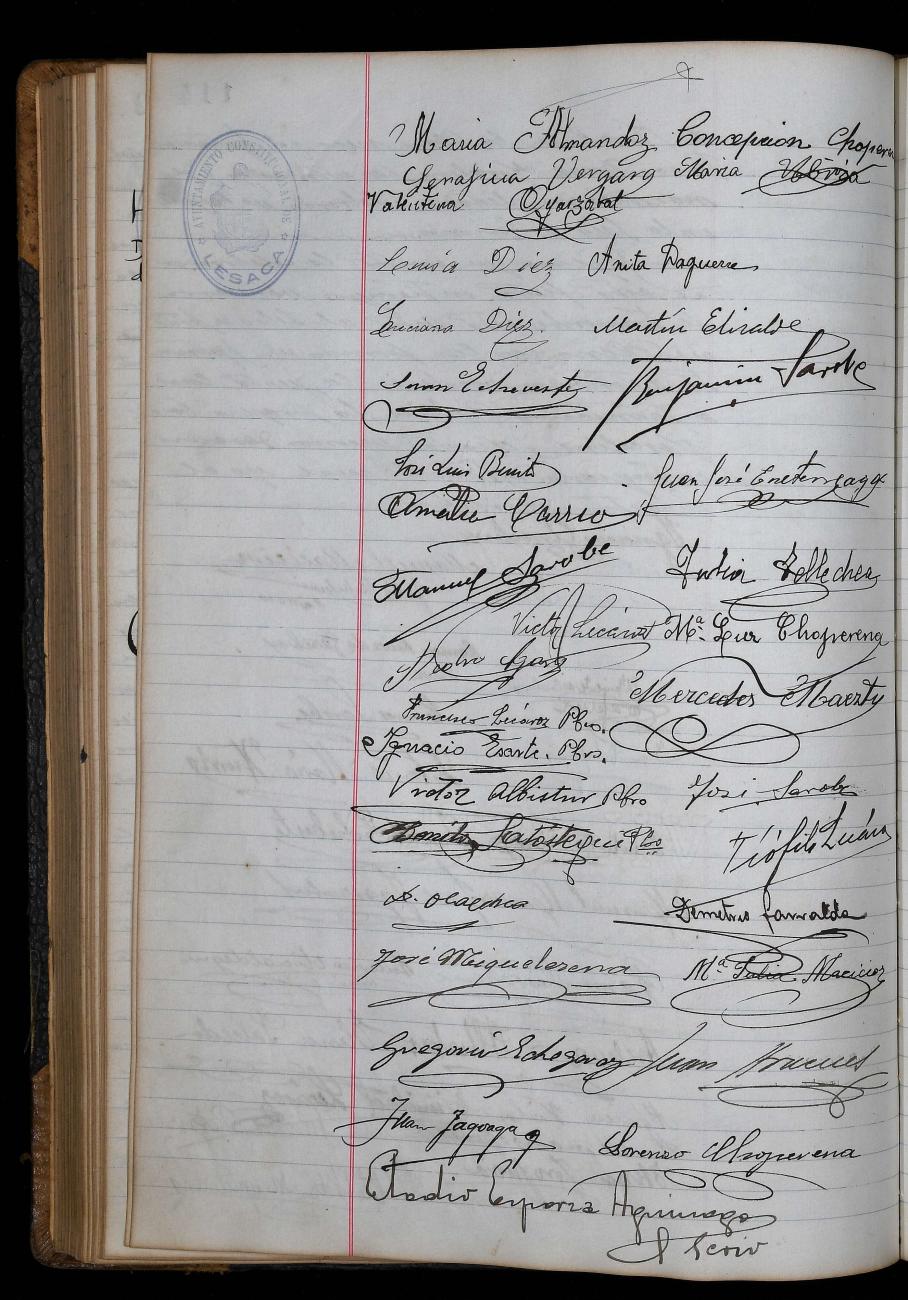 AYUNTAMIENTO CONSTITUCIONAL DE
LESACA
Maria F. Almandoz Concepcion Choperena
Serafina Vergara Maria
Valentena Oyarzabal
Luisa Diez Anita Daguerre
Luciana Diez Martín Elizalde
Juan Echeveste Benjamin Sarobe
José Luis Benito Juan José Eneterreaga
Amalia Carrio
Manuel Sarobe Julia Tellechea
Victor Lecároz Mª Luz Choperena
Pedro
Mercedes Maeztu
Francisco Lecároz Pbro.
Ignacio Esarte. Pbro.
Victor Albistur Pbro José Sarobe
Benito Pbro Teófilo
D. Olaechea Demetrio
José Miguelerena Mª Julia Macicior
Gregorio Echegaray Juan
Juan Zagoaga Lorenzo Choperena
Eladio Esparza Aguinaga